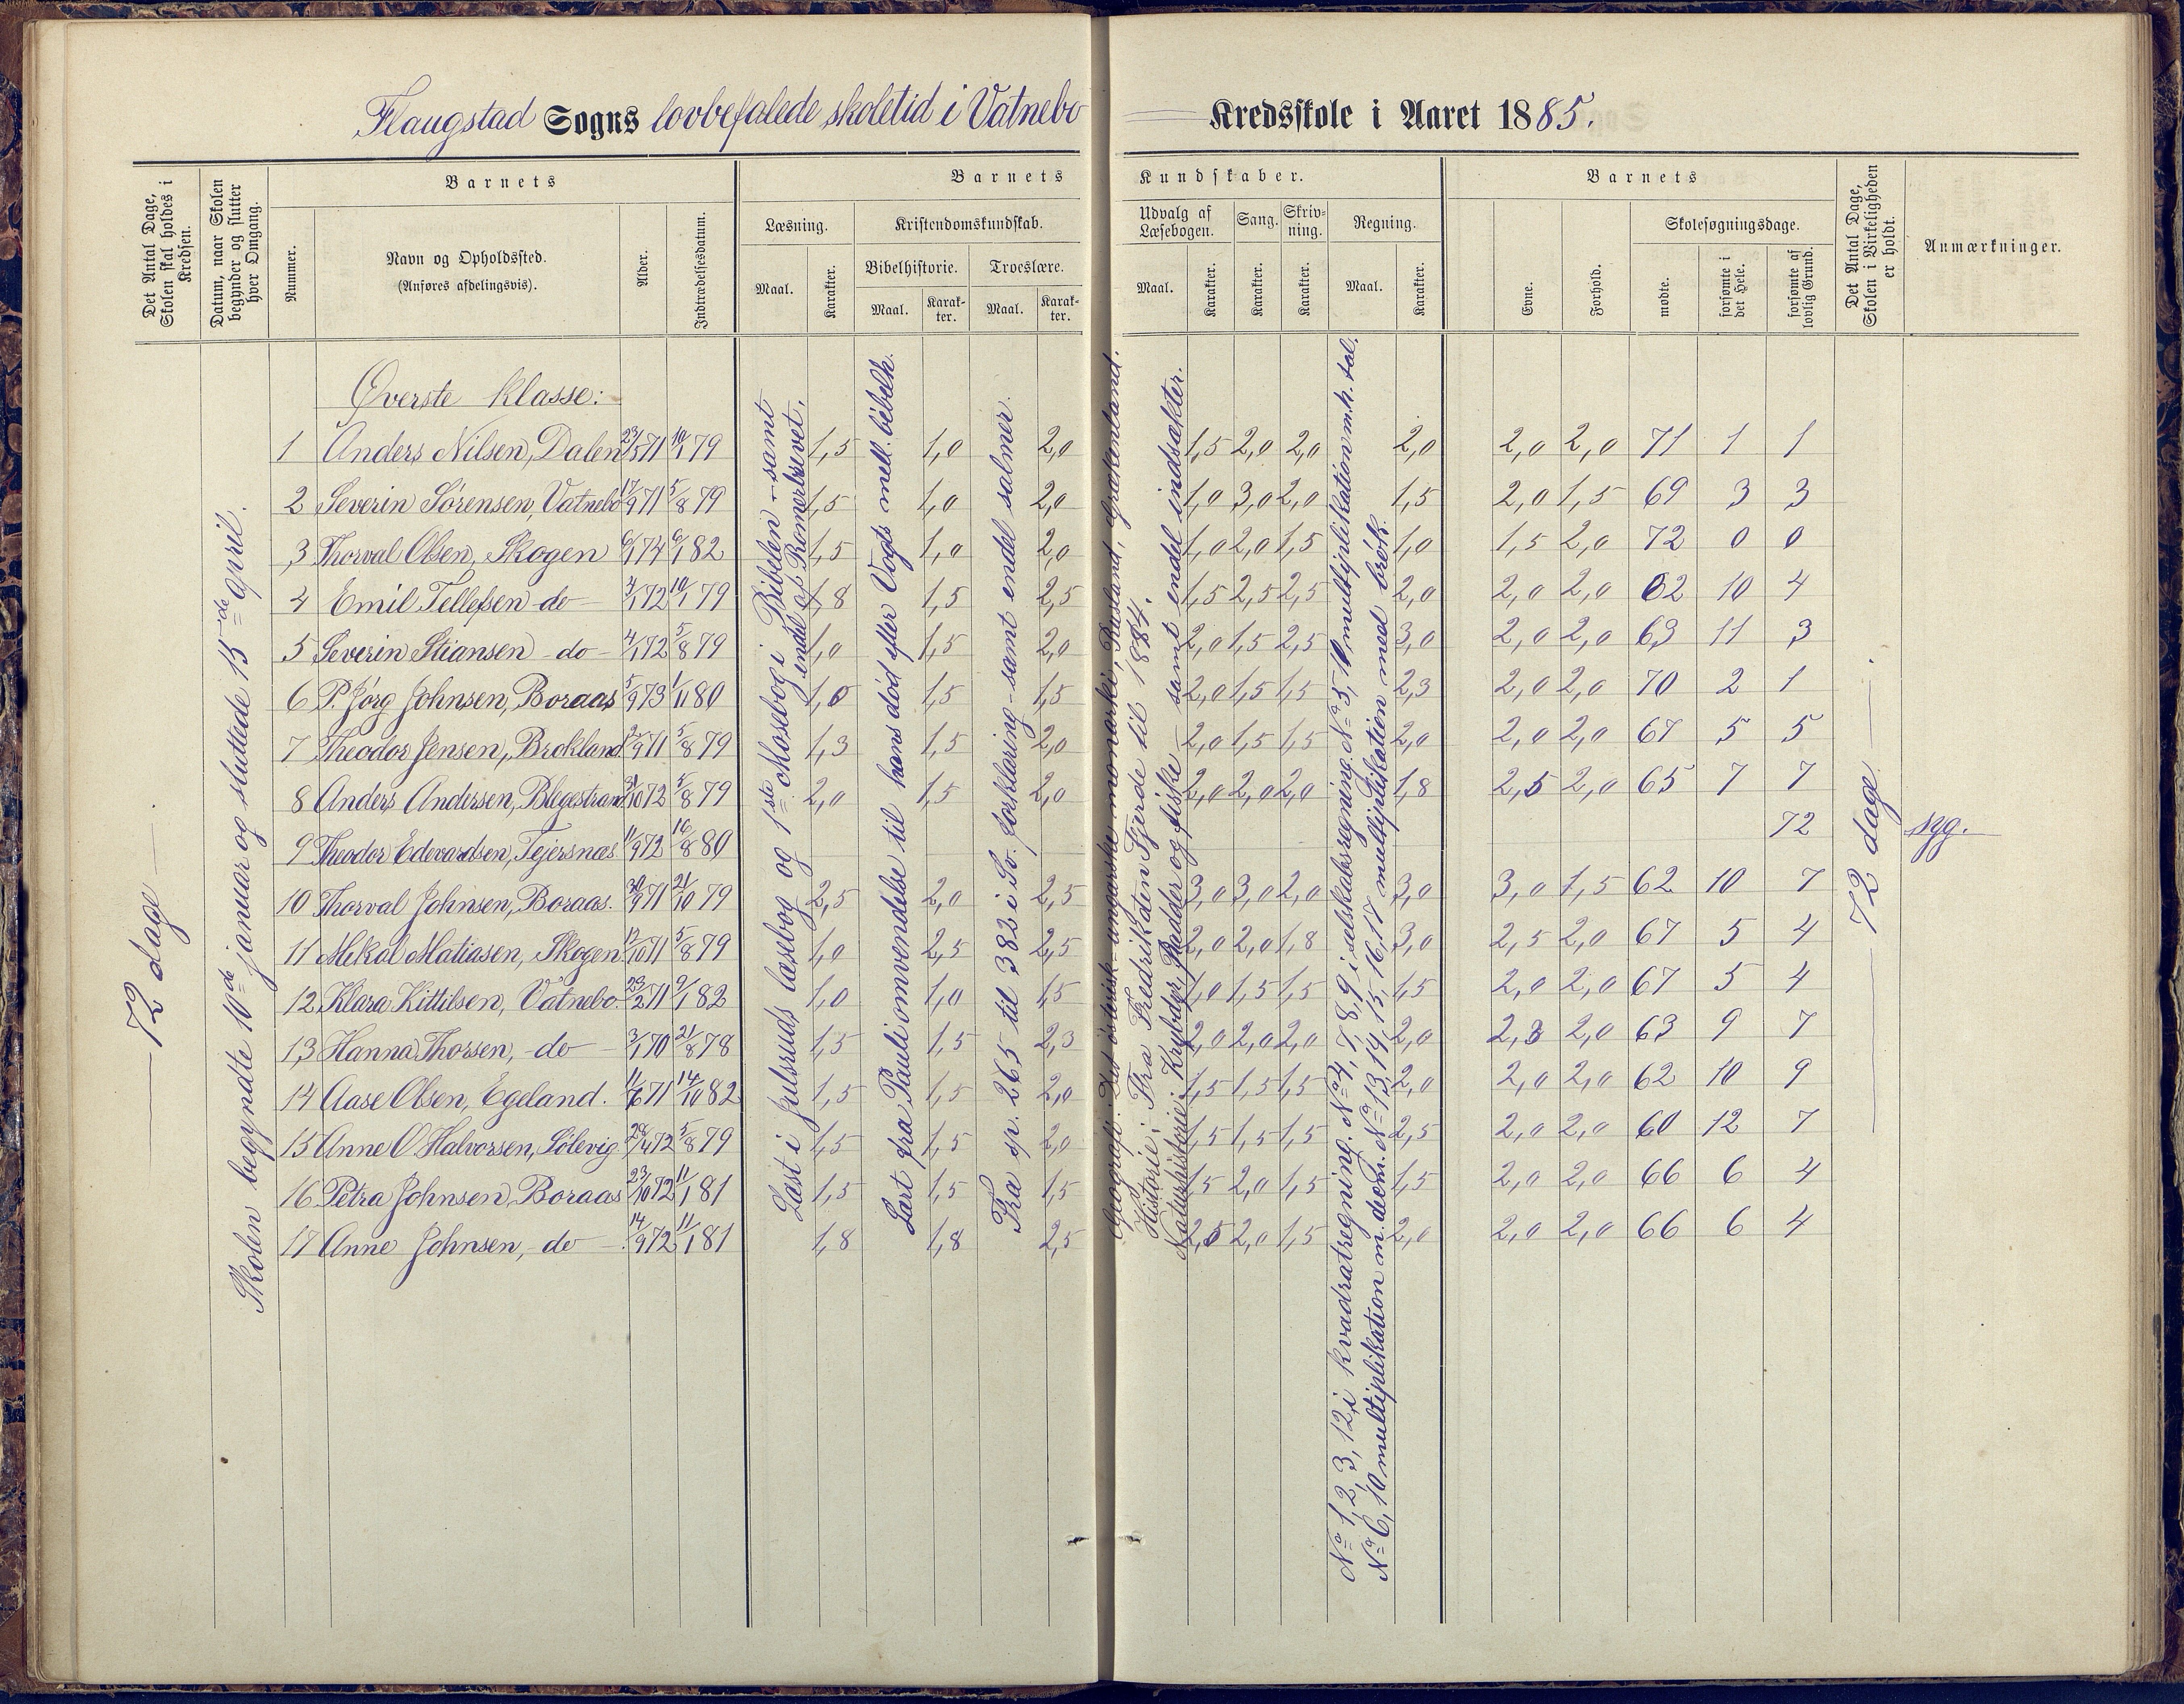 Flaugstad Sogns lovbefalede skoletid i Vatnebo Kredsskole i Aaret 1885.
Det Antal Dage, Skolen skal holdes i Kredsen.
Datum, naar Skolen begynder og slutter hver Omgang.
Barnets
Nummer.
Navn og Opholdssted.
(Anføres afdelingsvis).
Alder.
Indtrædelsesdatum.
Barnets Kundskaber.
Læsning.
Maal.
Karakter.
Kristendomskundskab.
Bibelhistorie.
Maal.
Karakter.
Troeslære.
Maal.
Karakter.
Udvalg af Læsebogen.
Maal.
Karakter.
Sang.
Karakter.
Skrivning.
Karakter.
Regning.
Maal.
Karakter.
Barnets
Evne.
Forhold.
Skolesøgningsdage.
mødte.
forsømte i det Hele.
forsømte af lovlig Grund.
Det Antal Dage, Skolen i Virkeligheden er holdt.
Anmærkninger.
72 dage
Skolen begyndte 10de januar og sluttede 15de april.
Øverste klasse:
1 Anders Nilsen, Dalen 23/5 71 10/1 79 1,5 1,0 2,0 1,5 2,0 2,0 2,0 2,0 2,0 71 1 1
2 Severin Sørensen, Vatnebo 17/9 71 5/8 79 1,5 1,0 2,0 1,0 3,0 2,0 1,5 2,0 1,5 69 3 3
3 Thorval Olsen, Skogen 6/1 74 9/1 82 1,5 1,0 2,0 1,0 2,0 1,5 1,0 1,5 2,0 72 0 0
4 Emil Tellefsen do 3/1 72 10/1 79 1,8 1,5 2,5 1,5 2,5 2,5 2,0 2,0 2,0 62 10 4
5 Severin Stiansen do 4/1 72 5/8 79 1,0 1,5 2,0 2,0 1,5 2,5 3,0 2,0 2,0 63 11 3
6 P. Jørg Johnsen, Boraas 5/9 73 1/11 80 1,0 1,5 1,5 2,0 1,5 1,5 2,3 2,0 2,0 70 2 1
7 Theodor Jensen, Brokland 12/9 71 5/8 79 1,3 1,5 2,0 2,0 1,5 1,5 2,0 2,0 2,0 67 5 5
8 Anders Andersen, Blegestrand 31/10 72 5/8 79 2,0 1,5 2,0 2,0 2,0 2,0 1,8 2,5 2,0 65 7 7
9 Theodor Edevardsen, Tejersnæs 11/9 72 16/8 80 72 syg.
10 Thorval Johnsen, Boraas. 30/9 71 21/10 79 2,5 2,0 2,5 3,0 3,0 2,0 3,0 3,0 1,5 62 10 7
11 Mekal Matiasen, Skogen 12/10 71 5/8 79 1,0 2,5 2,5 2,0 2,0 1,8 3,0 2,5 2,0 67 5 4
12 Klara Kittilsen, Vatnebo 23/2 71 9/1 82 1,0 1,0 1,5 1,0 1,5 1,5 1,5 2,0 2,0 67 5 4
13 Hanna Thorsen, do 3/1 70 21/8 78 1,5 1,5 2,3 2,0 2,0 2,0 2,0 2,3 2,0 63 9 7
14 Aase Olsen, Egeland. 11/6 71 14/10 82 1,5 1,5 2,0 1,5 1,5 1,5 2,0 2,0 2,0 62 10 9
15 Anne O. Halvorsen, Sølevig 28/4 72 5/8 79 1,5 1,5 2,0 1,5 1,5 1,5 2,5 2,0 2,0 60 12 7
16 Petra Johnsen, Boraas 23/10 72 11/1 81 1,5 1,5 1,5 1,5 2,0 1,5 1,5 2,0 2,0 66 6 4
17 Anne Johnsen, do 14/9 72 11/1 81 1,8 1,8 2,5 2,5 2,0 1,5 2,0 2,0 2,0 66 6 4
Læst i Julsruds læsebog og 1ste Mosebog i Bibelen - samt
endel af Romerbrevet.
Lært fra Pauli omvendelse til hans død efter Vogts mell. bibelh.
Fra sp. 265 til 382 i Sv. forklaring - samt endel salmer.
Geografi: Det østerisk-ungarske monarki, Rusland, Grækenland.
Historie: Fra Fredrik den Fjerde til 1884.
Naturhistorie: Krybdyr, Padder og fiske - samt endel indsekter.
No 1, 2, 3, 12 i kvadratregning. No 4, 7, 8, 9 i selskabsregning. No 5, 10, multiplikation m.h. tal.
No 6, 10 multiplikation m. decm. No 13, 14, 15, 16, 17 multiplikation med brøk.
72 dage